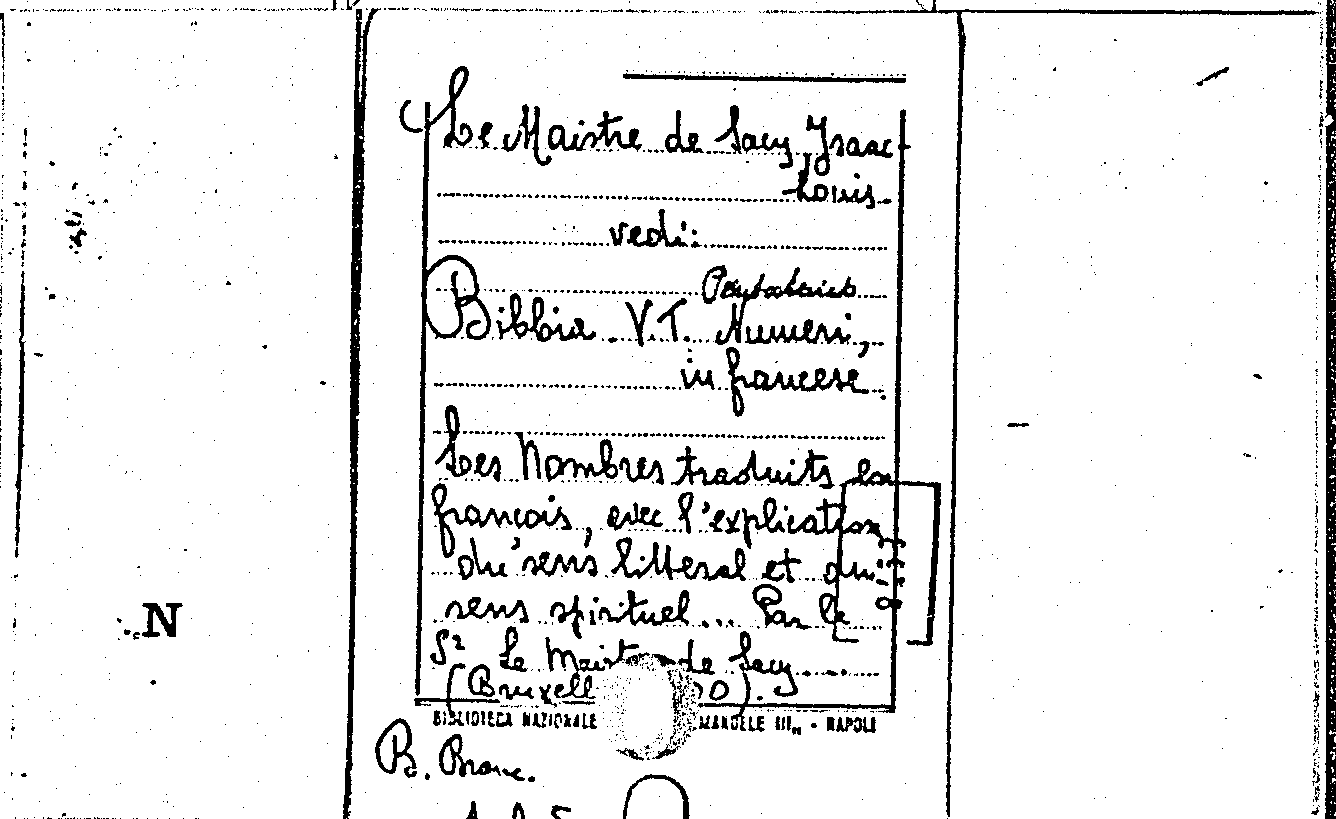 Le Maistre de Sacy, Isaac-
Louis.
vedi:
Bibbia. V.T. Numeri,
in francese.
Les Nombres traduits en
françois, avec l'explication
du sens litteral et du
sens spirituel... Par le
Sr Le Maist de Sacy....
(Bruxell 0).
BIBLIOTECA NAZIONALE MANUELE III„ - NAPOLI
B. Branc.
N